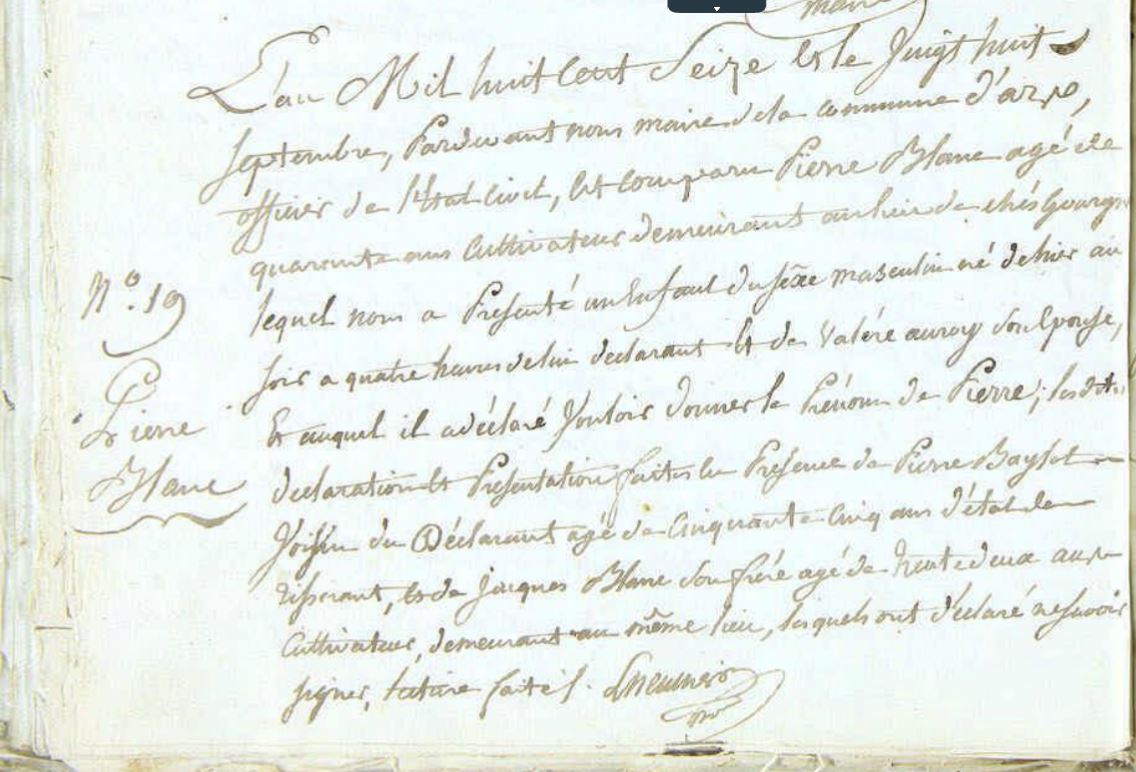 maire
L'an Mil huit Cent Seize & le Vingt huit
Septembre, Pardevant nous maire de la commune d'
officier de l'Etat Civil, Est Comparu Pierre Blanc agé de
quarante ans Cultivateur demeurant au lieu de chés
lequel nous a Présenté un Enfant du sexe masculin né de hier au
soir a quatre heures de lui déclarant Et de Valére auroy son Epouse,
Et auquel il a déclaré Vouloir donner le Prénom de Pierre; lesdites
declaration Et Présentation faites En Présence de Pierre
N.º 19
Pierre
Blanc
Voisin du Déclarant agé de Cinquante Cinq ans d'état de
tisserant, & de Jacques Blanc son frére agé de trente deux ans
Cultivateur, demeurant au même lieu, lesquels ont déclaré ne savoir
signer, lecture faite